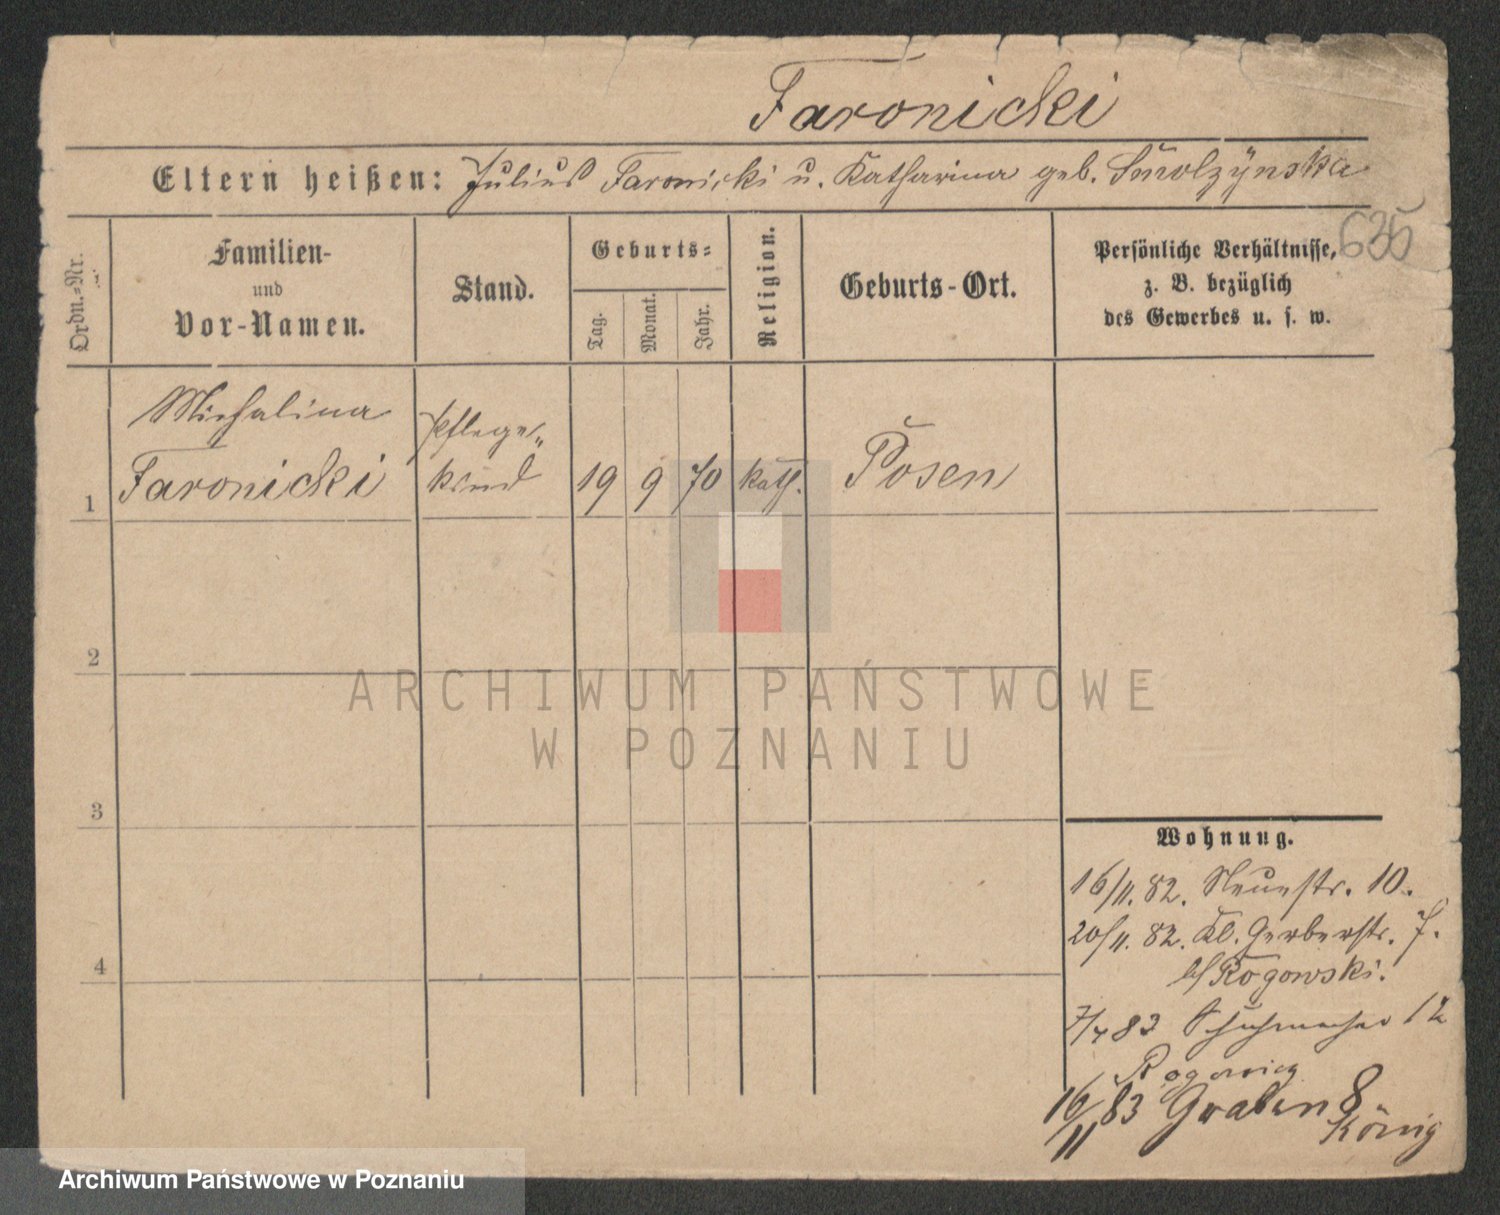 Faronicki
Eltern heißen: Julius Faronicki u. Katharina geb. Smolzÿnska
635
Ordn.-Nr.
Familien-
und
Vor-Namen.
Stand.
Geburts=
Tag.
Monat.
Jahr.
Religion.
Geburts-Ort.
Persönliche Verhältnisse,
z. B. bezüglich
des Gewerbes u. s. w.
Michalina
Faronicki
Pflege„
kind
1
19
9
70
kath.
Posen
2
3
4
Wohnung.
16/11. 82. Neuestr. 10.
20/11. 82. Kl. Gerberstr. 7.
b/ Rogowski.
7/4 83 Schuhmacher 12
16/11 83 Graben 8
König
ARCHIWUM PAŃSTWOWE
W POZNANIU
Archiwum Państwowe w Poznaniu